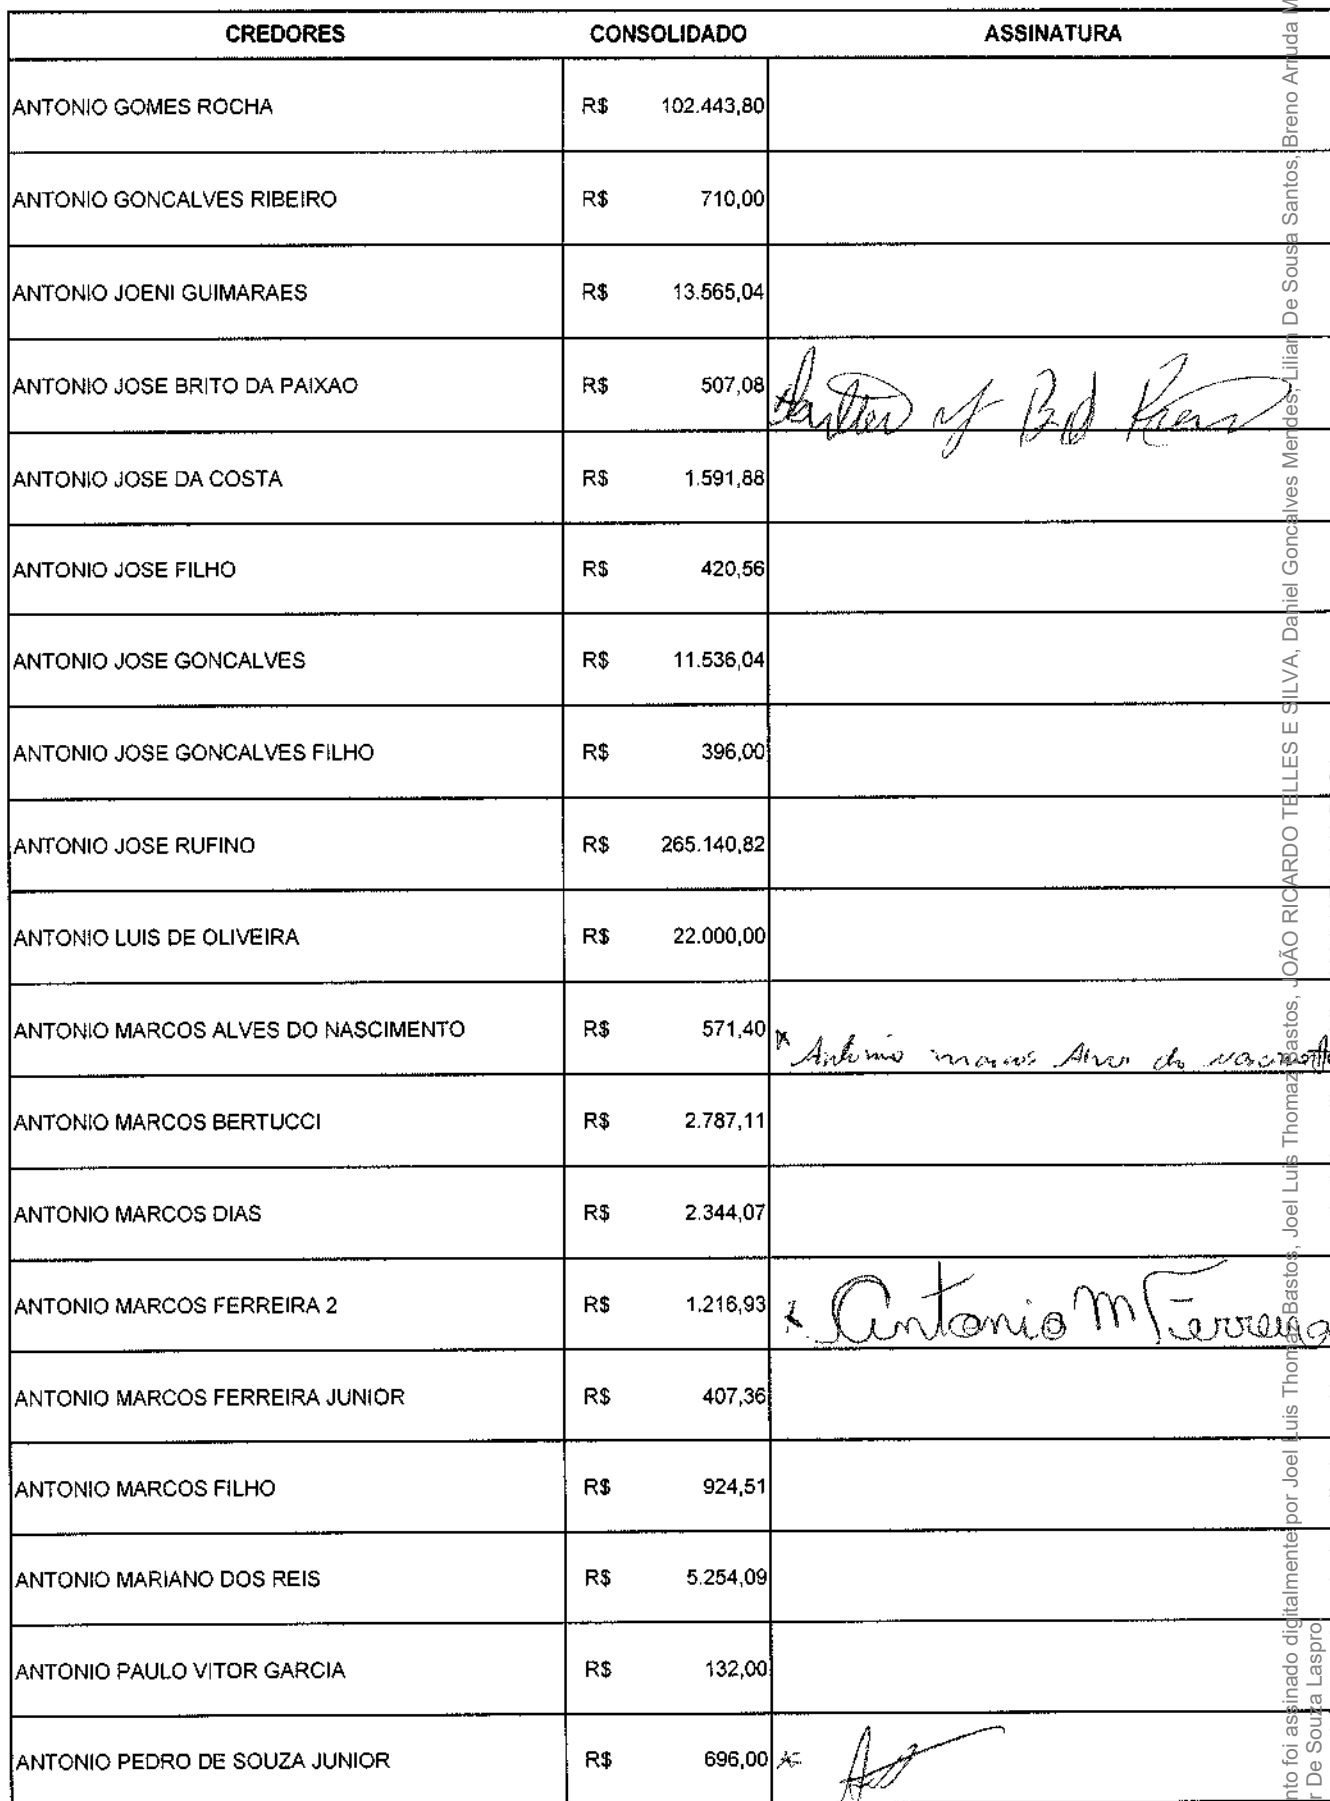 CREDORES CONSOLIDADO ASSINATURA
ANTONIO GOMES ROCHA R$ 102.443,80
ANTONIO GONCALVES RIBEIRO R$ 710,00
ANTONIO JOENI GUIMARAES R$ 13.565,04
ANTONIO JOSE BRITO DA PAIXAO R$ 507,08
ANTONIO JOSE DA COSTA R$ 1.591,88
ANTONIO JOSE FILHO R$ 420,56
ANTONIO JOSE GONCALVES R$ 11.536,04
ANTONIO JOSE GONCALVES FILHO R$ 396,00
ANTONIO JOSE RUFINO R$ 265.140,82
ANTONIO LUIS DE OLIVEIRA R$ 22.000,00
ANTONIO MARCOS ALVES DO NASCIMENTO R$ 571,40 Antonio marcos Alves do
ANTONIO MARCOS BERTUCCI R$ 2.787,11
ANTONIO MARCOS DIAS R$ 2.344,07
ANTONIO MARCOS FERREIRA 2 R$ 1.216,93 x Antonio M Ferreira
ANTONIO MARCOS FERREIRA JUNIOR R$ 407,36
ANTONIO MARCOS FILHO R$ 924,51
ANTONIO MARIANO DOS REIS R$ 5.254,09
ANTONIO PAULO VITOR GARCIA R$ 132,00
ANTONIO PEDRO DE SOUZA JUNIOR R$ 696,00
nto foi assinado digitalmente por Joel Luis Thomaz Bastos, Joel Luis Thomaz Bastos, JOÃO RICARDO TELLES E SILVA, Daniel Goncalves Mendes, Lilian De Sousa Santos, Breno Arruda M
r De Souza Laspro.